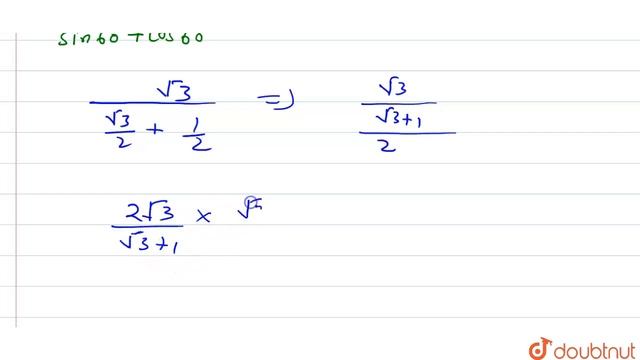 sin 60 + cos 60
√3 / (√3/2 + 1/2) => √3 / ((√3+1)/2)
2√3 / (√3+1) × √
doubtnut